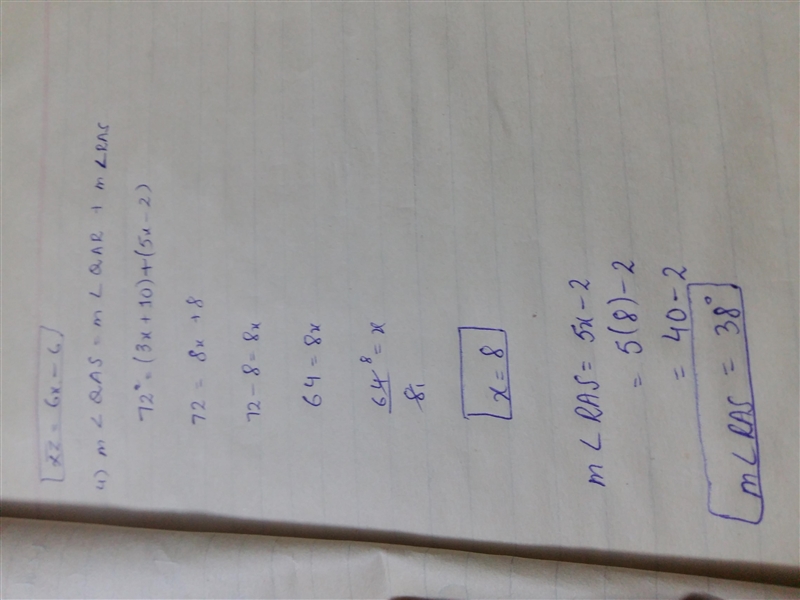 XZ = 6x - 6
4) m∠QAS = m∠QAR + m∠RAS
72° = (3x+10)+(5x-2)
72 = 8x + 8
72-8 = 8x
64 = 8x
64 8 = x
8 1
x = 8
m∠RAS = 5x-2
= 5(8)-2
= 40-2
m∠RAS = 38°